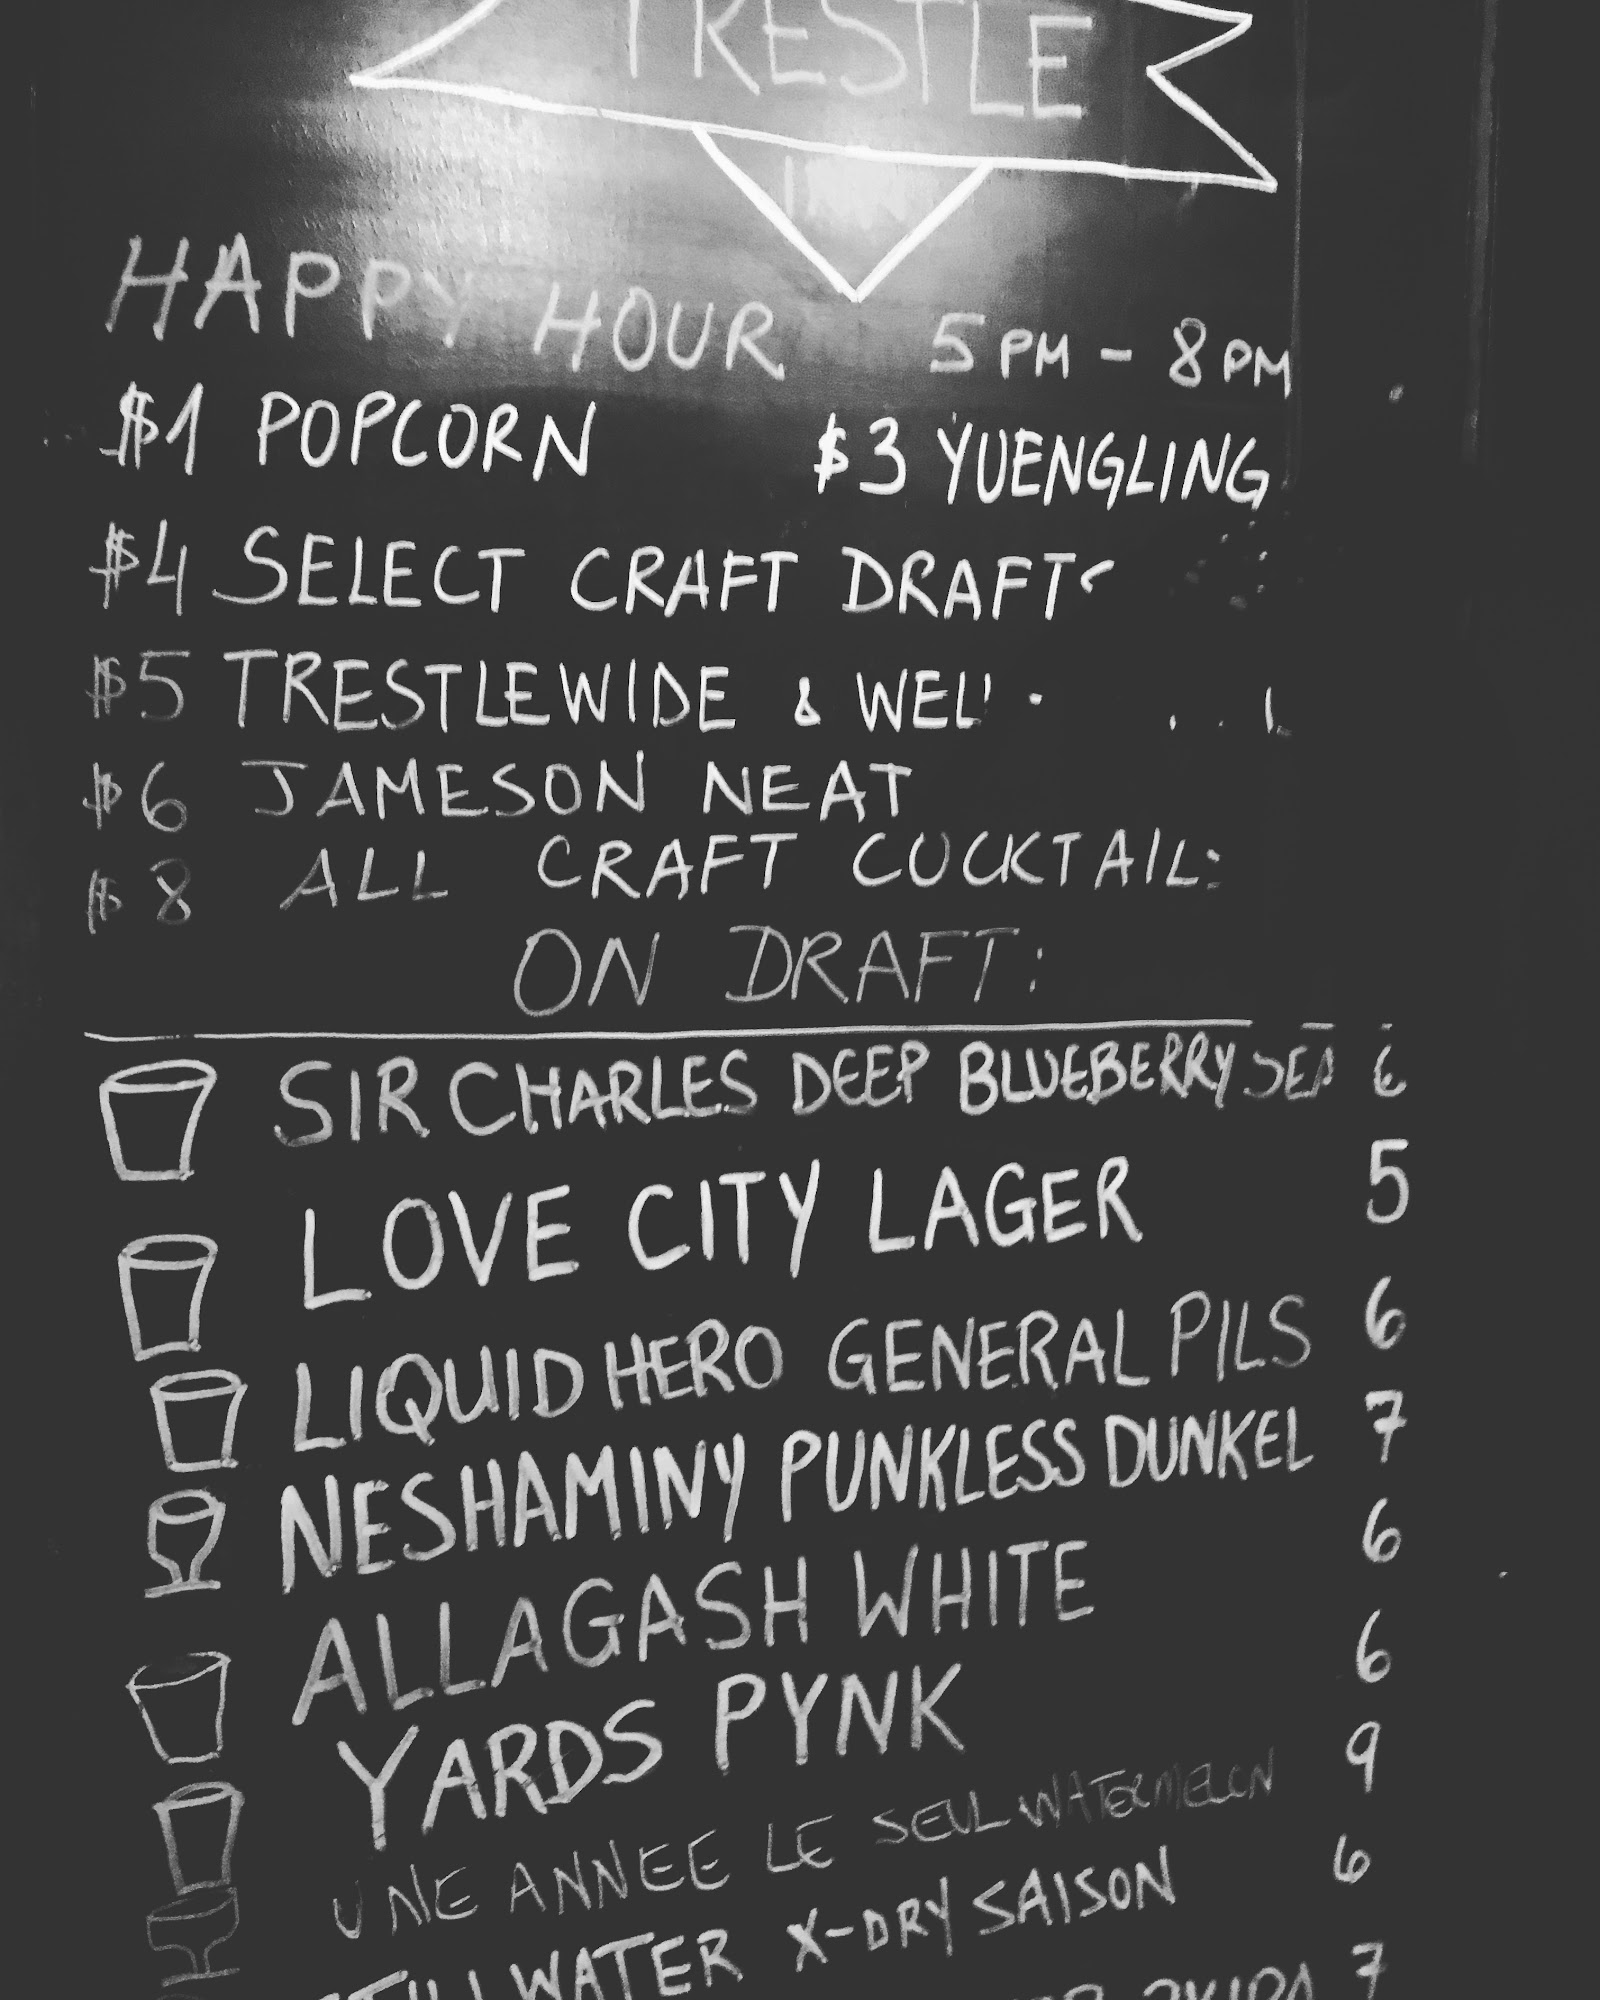 TRESTLE
INN
HAPPY HOUR 5PM - 8PM
$1 POPCORN $3 YUENGLING
$4 SELECT CRAFT DRAFTS
$5 TRESTLEWIDE & WELL
$6 JAMESON NEAT
$8 ALL CRAFT COCKTAIL:
ON DRAFT:
SIR CHARLES DEEP BLUEBERRY SEA 6
LOVE CITY LAGER 5
LIQUID HERO GENERAL PILS 6
NESHAMINY PUNKLESS DUNKEL 7
ALLAGASH WHITE 6
YARDS PYNK 6
UNE ANNEE LE SEUL WATERMELON 9
STILLWATER X-DRY SAISON 6
7